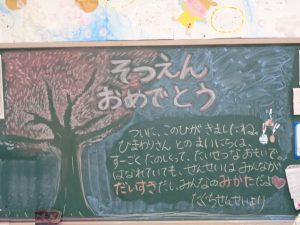 そつえん
おめでとう
ついに、このひがきましたね。
ひまわりさんとのまいにちは、
すーごくたのしくって、たいせつなおもいで。
はなれていても、せんせいは、みんなが
だいすきだし、みんなのみかただよ
たぐちせんせいより